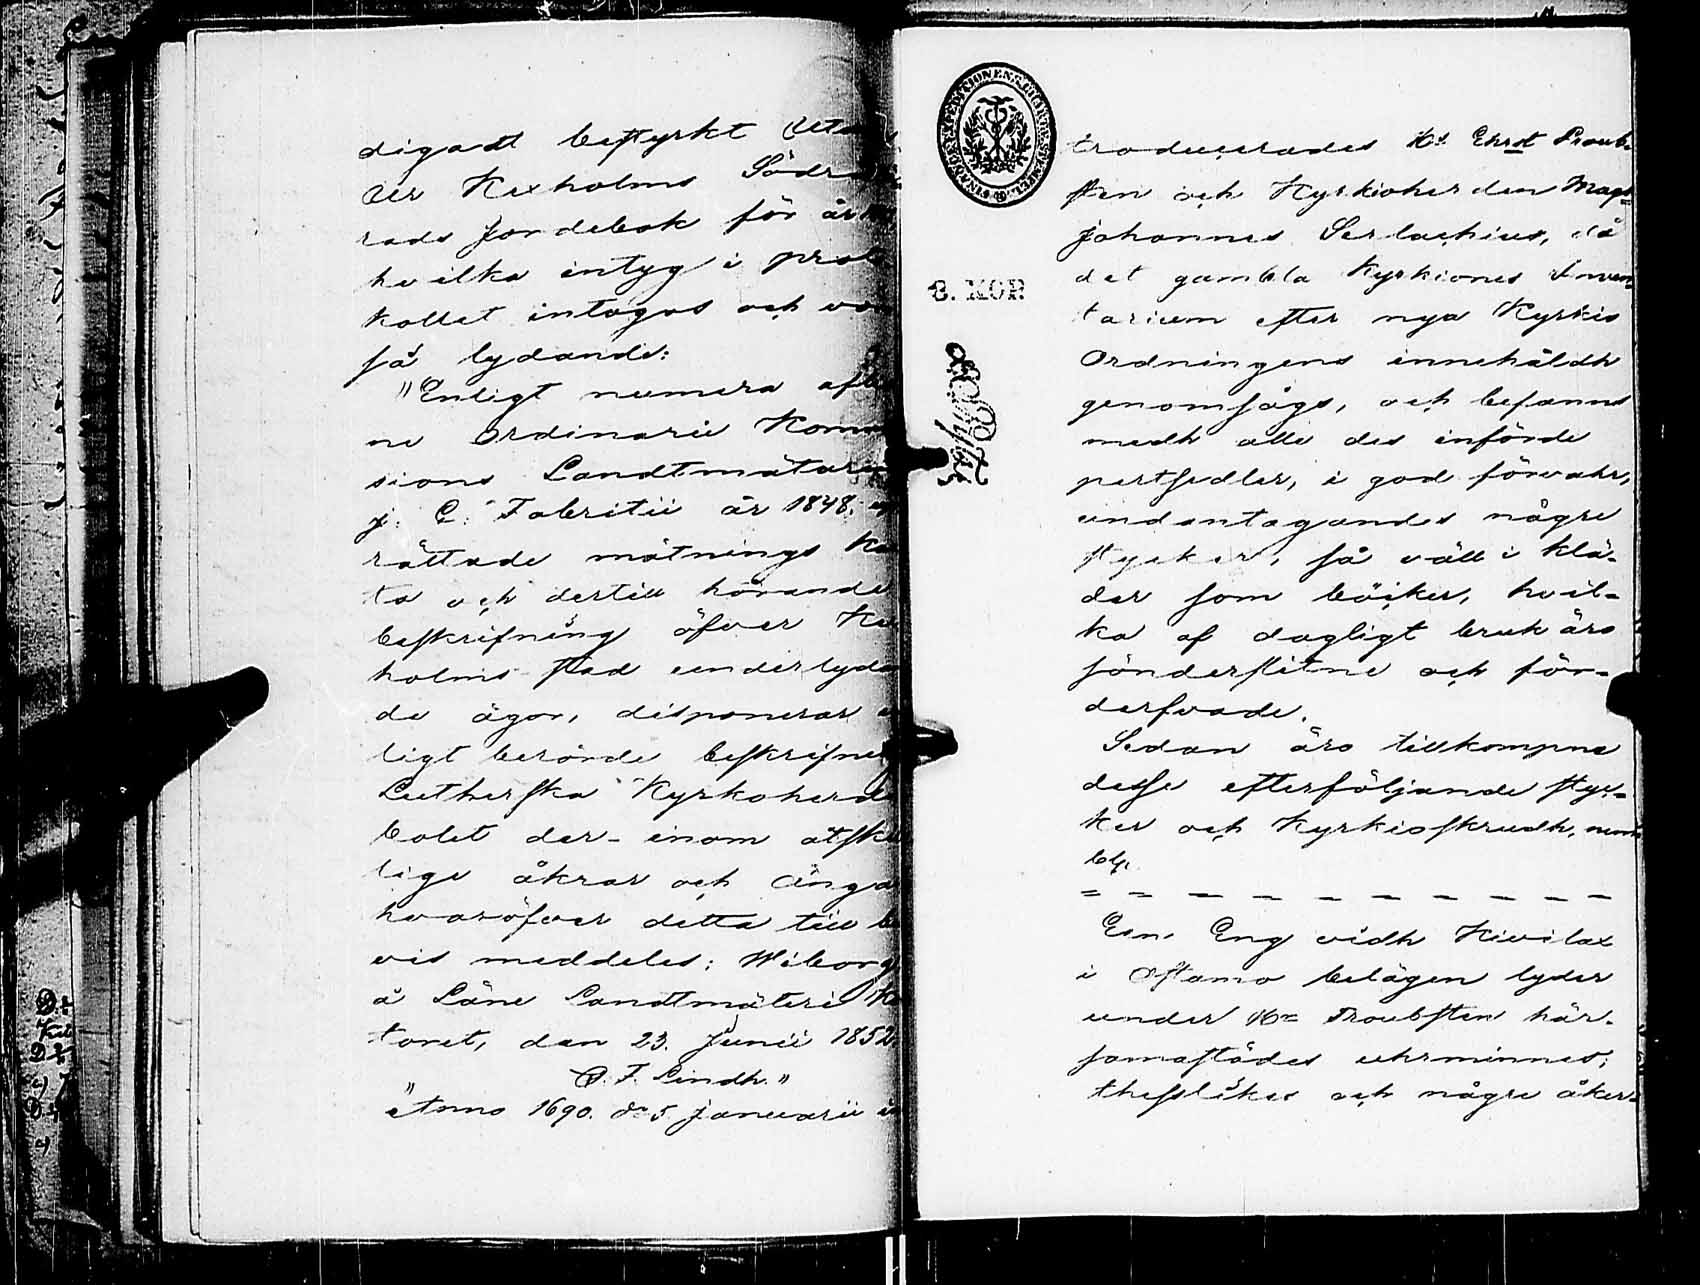 digadt bestyrkt Uta
der Kexholms Södra
rads Jordebok för år
hvilka intyg i proto
kollet intogos och vor
så lydande:
"Enligt numera afl
ne Ordinarie Komm
sions Landtmätare
J: C: Fabritii år 1848. up
rättade mätnings Ka
ta och dertill hörande
beskrifning öfver Kex
holms stad underlydan
de ägor, disponerar en
ligt berörde beskrifning
Lutherska Kyrkoherde
bolet der-inom åtskil
lige åkrar och Ängar
hvaröfver detta till be
vis meddeles; Wiborg
å Läne Landtmäteri Ko
toret, den 23. Junii 1852.
F. Lindh."
"Anno 1690. dn 5. Januarii in
8. KOP.
troducerades Hr Ehrdt Proub-
sten och Kyrkioherden Mag=
Johannes Serlachius, då
det gambla Kyrkiones Inven
tarium efter nya Kyrkio
Ordningens innehåldh
genomsågs, och befanns
medh alle des införde
pertsedler, i god förvahr,
undantagandes någre
stycker, så väll i klä-
der som böcker, hvil-
ka af dagligt bruk äro
sönderslitne och för-
derfvade.
Sedan äro tillkompne
desse efterföljande styc=
ker och Kyrkioskrudh, nem
bl.
= = = = = = = = = = =
Een Eng vidh Kivilax
i Ostamo belägen lyder
under Hr Proubsten här-
samastädes uhrminnes;
thesslikes och någre åker=